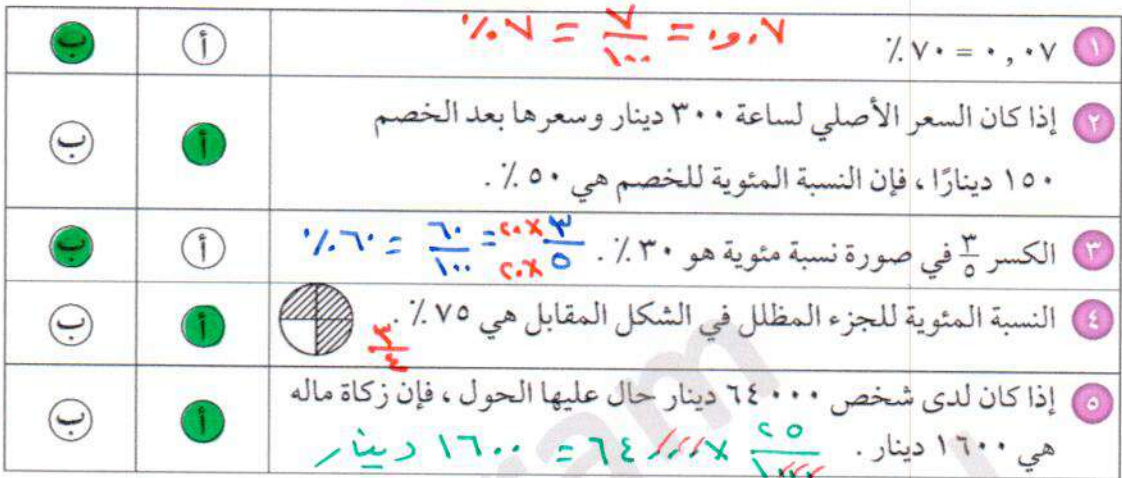 ١ ٠,٠٧ = ٧٠٪ ٠,٠٧ = ٧/١٠٠ = ٧٪ أ ب
٢ إذا كان السعر الأصلي لساعة ٣٠٠ دينار وسعرها بعد الخصم
١٥٠ دينارًا ، فإن النسبة المئوية للخصم هي ٥٠٪ . أ ب
٣ الكسر ٣/٥ في صورة نسبة مئوية هو ٣٠٪ . ٣×٢٠/٥×٢٠ = ٦٠/١٠٠ = ٦٠٪ أ ب
٤ النسبة المئوية للجزء المظلل في الشكل المقابل هي ٧٥٪ . أ ب
٣/٤
٥ إذا كان لدى شخص ٦٤٠٠٠ دينار حال عليها الحول ، فإن زكاة ماله
هي ١٦٠٠ دينار . ٢٥/١٠٠٠ × ٦٤٠٠٠ = ١٦٠٠ دينار أ ب